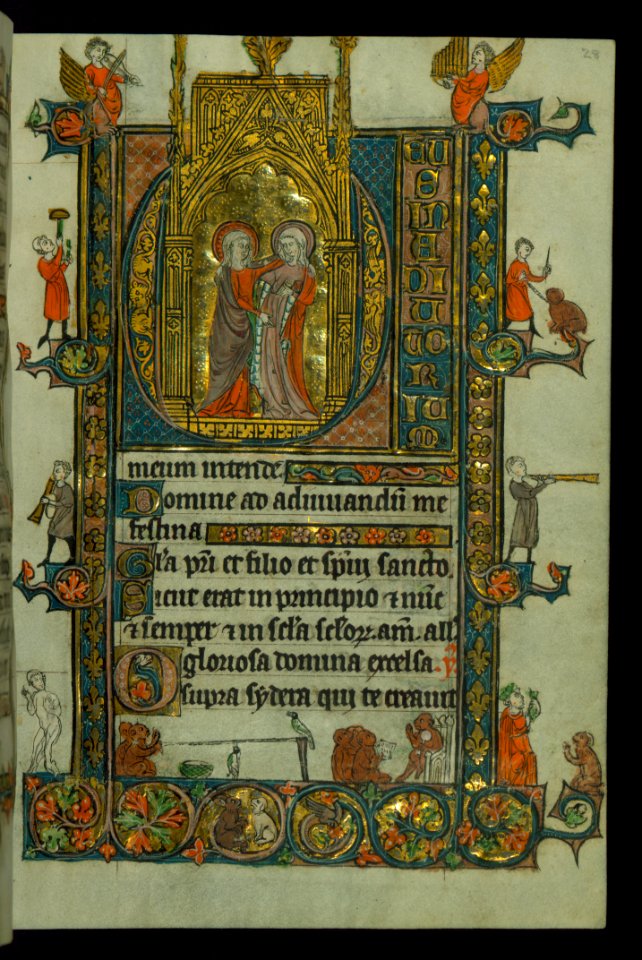 28
DEUS IN ADIUTORIUM
meum intende
Domine ad adiuuandū me
festina
Gl̄a pr̄i et filio et sp̄ui sancto.
Sicut erat in principio ⁊ nūc
⁊ semper ⁊ in scl̄a scl̄oꝝ. am̄. all̄
O gloriosa domina excelsa.
supra sydera qui te creauit